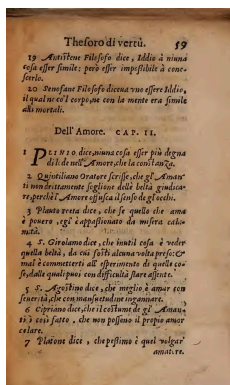 Thesoro di vertù. 59
19 Antistene Filosofo dice, Iddio à niuna
cosa esser simile: però esser impossibile à cono-
scerlo.
20 Senofane Filosofo diceua vno essere Iddio,
il qual ne co'l corpo, ne con la mente era simile
alli mortali.
Dell'Amore. CAP. II.
1 PLINIO dice, niuna cosa esser più degna
di lode nell'Amore, che la constanza.
2 Quintiliano Oratore scrisse, che gl'Aman-
ti non drittamente sogliono delle beltà giudica-
re, perche l'Amore offusca il senso de gl'occhi.
3 Plauto Poeta dice, che se quello che ama
è pouero, egl'è appassionato da misera cala-
mità.
4 S. Girolamo dice, che inutil cosa è veder
quella beltà, da cui fosti alcuna volta preso: &
mal è commetterti all'esperimento di quelle co-
se, dalle quali puoi con difficultà stare assente.
5 S. Agostino dice, che meglio è amar con
seuerità, che con mansuetudine ingannare.
6 Cipriano dice, che il costume de gl'Aman-
ti è così fatto, che non possono il proprio amor
celare.
7 Platone dice, che pessimo è quel volgar
amatore.